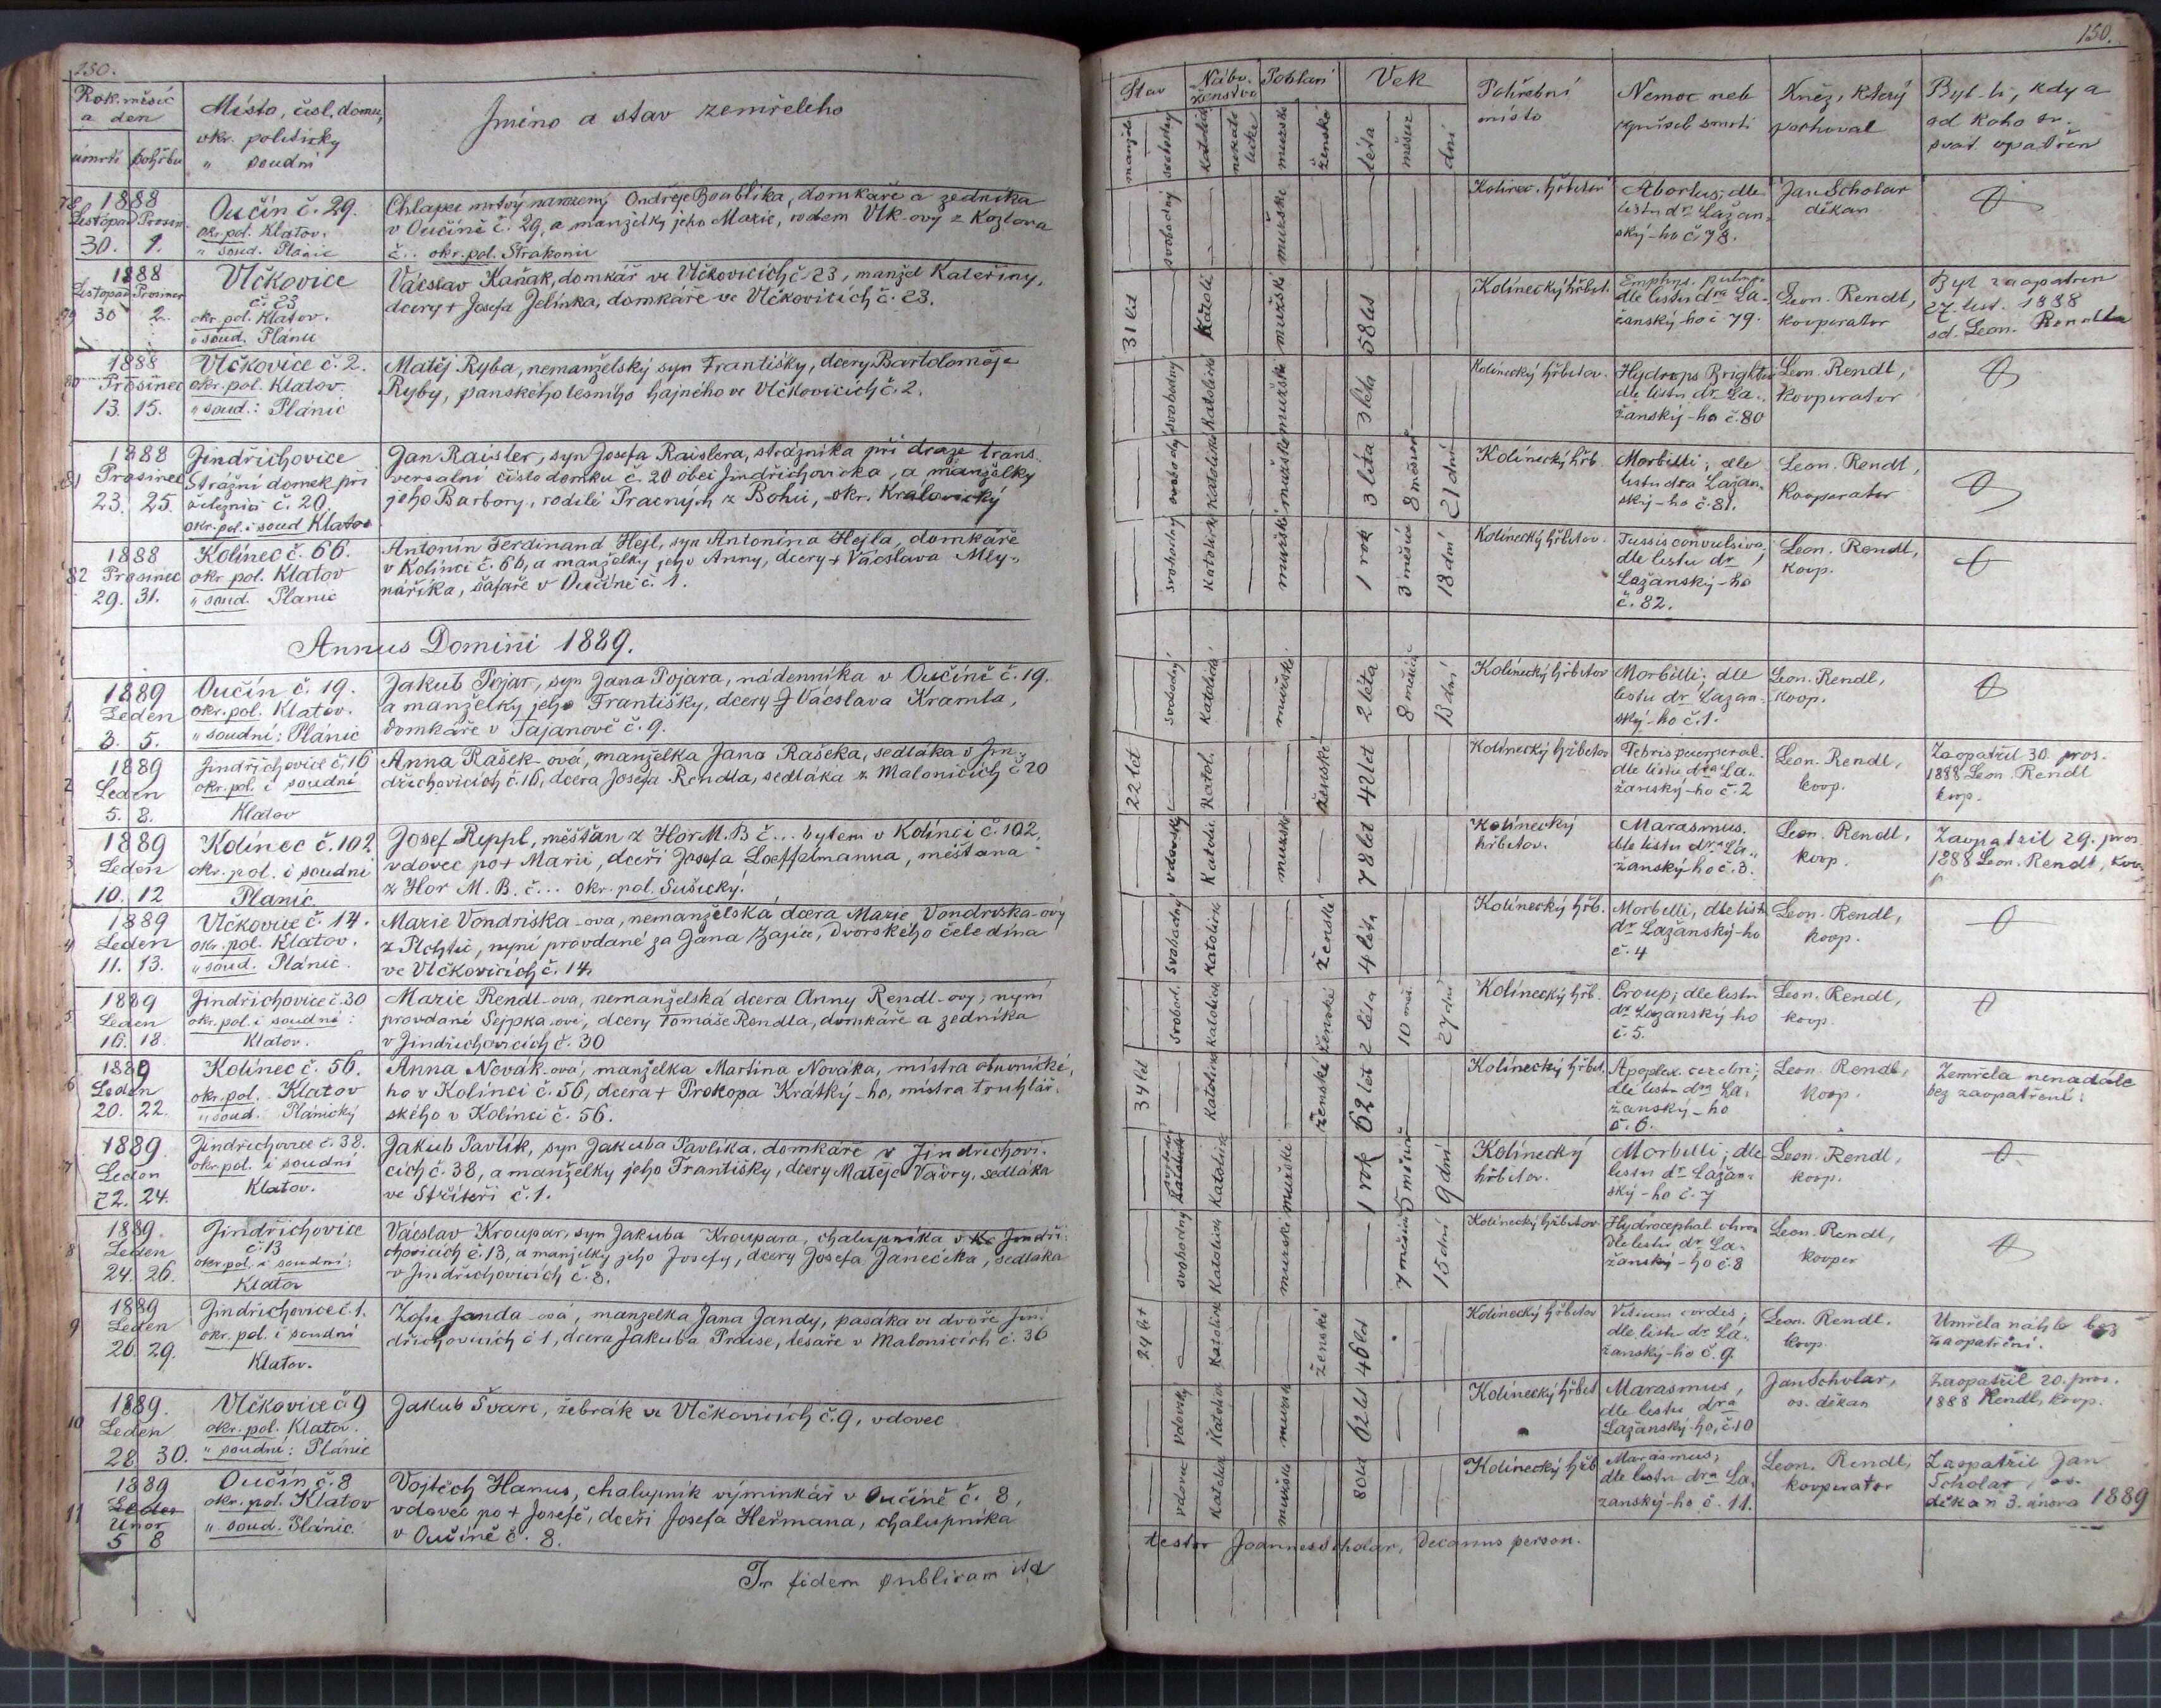 150.
Rok. měsíc a den
úmrtí pohřbu
Místo, čísl. domu,
okr. politický
" soudní
Jméno a stav zemřelého
78 1888
Listopad Prosin.
30. 1.
Oučín č. 29.
okr. pol. Klatov.
" soud. Plánic
Chlapec mrtvý narozený Ondřeje Boublíka, domkáře a zedníka
v Oučíně č. 29, a manželky jeho Marie, rodem Vlk-ový z Kozlova
č... okr. pol. Strakonic
1888
Listopad Prosinec
79 30 2.
Vlčkovice
č. 23
okr. pol. Klatov.
" soud. Plánic
Vácslav Kaňák, domkář ve Vlčkovicích č. 23, manžel Kateřiny,
dcery + Josefa Jelínka, domkáře ve Vlčkovicích č. 23.
1888
80 Prosinec
13. 15.
Vlčkovice č. 2.
okr. pol. Klatov.
" soud.: Plánic
Matěj Ryba, nemanželský syn Františky, dcery Bartoloměje
Ryby, panského lesního hajného ve Vlčkovicích č. 2.
1888
81 Prosinec
23. 25.
Jindřichovice
Strážní domek při
železnici č. 20
okr. pol. i soud Klatov
Jan Raisler, syn Josefa Raislera, strážníka při draze trans-
versalní číslo domku č. 20 obci Jindřichovicka, a manželky
jeho Barbory, rodilé Pracných z Bohů, okr. Kralovický
1888
82 Prosinec
29. 31.
Kolínec č. 66.
okr. pol. Klatov
" soud. Plánic
Antonín Ferdinand Hejl, syn Antonína Hejla, domkáře
v Kolínci č. 66, a manželky jeho Anny, dcery + Vácslava Mly-
náříka, šafáře v Oučíně č. 1.
Annus Domini 1889.
1889
1. Leden
3. 5.
Oučín č. 19.
okr. pol. Klatov.
" soudní: Plánic
Jakub Pojar, syn Jana Pojara, nádenníka v Oučíně č. 19.
a manželky jeho Františky, dcery + Vácslava Kramla,
domkáře v Tajanově č. 9.
1889
2 Leden
5. 8.
Jindřichovice č. 16
okr. pol. i soudní
Klatov
Anna Rašek-ová, manželka Jana Rašeka, sedláka v Jin-
dřichovicích č. 16, dcera Josefa Rendla, sedláka z Malonicích č 20
1889
3 Leden
10. 12
Kolínec č. 102
okr. pol. i soudní
Plánic
Josef Reppl, měšťan z Hor M. B č... bytem v Kolínci č. 102,
vdovec po + Marii, dceři Josefa Loeffelmanna, měšťana
z Hor M. B. č... okr. pol. Sušický.
1889
4 Leden
11. 13.
Vlčkovice č. 14.
okr. pol. Klatov.
" soud. Plánic.
Marie Vondriska-ova, nemanželská dcera Marie Vondriska-ový
z Plchtic, nyní provdané za Jana Zajíc, dvorského čeledína
ve Vlčkovicích č. 14.
1889
5 Leden
16. 18.
Jindřichovice č. 30
okr. pol. i soudní:
Klatov.
Marie Rendl-ova, nemanželská dcera Anny Rendl-ovy, nyní
provdané Sejpka-ové, dcery Tomáše Rendla, domkáře a zedníka
v Jindřichovicích č. 30
1889
6 Leden
20. 22.
Kolínec č. 56.
okr. pol. Klatov
" soud. Plánický
Anna Novák-ová, manželka Martina Nováka, mistra obuvnické-
ho v Kolínci č. 56, dcera + Prokopa Krátký-ho, mistra truhlář-
ského v Kolínci č. 56.
1889.
7 Leden
22. 24.
Jindřichovice č. 38.
okr. pol. i soudní
Klatov.
Jakub Pavlík, syn Jakuba Pavlíka, domkáře v Jindřichovi-
cích č. 38, a manželky jeho Františky, dcery Matěje Vávry, sedláka
ve Střiteři č. 1.
1889.
8 Leden
24. 26.
Jindřichovice
č. 13
okr. pol. i soudní:
Klatov
Vácslav Kroupar, syn Jakuba Kroupara, chalupníka v Jindři-
chovicích č. 13, a manželky jeho Josefy, dcery Josefa Janečka, sedláka
v Jindřichovicích č. 8.
1889
9 Leden
26. 29.
Jindřichovice č. 1.
okr. pol. i soudní
Klatov.
Žofie Janda-ová, manželka Jana Jandy, pasáka ve dvoře Jin-
dřichovicích č 1, dcera Jakuba Praise, tesaře v Malonicích č. 36
1889.
10 Leden
28. 30.
Vlčkovice č 9
okr. pol. Klatov.
" soudní: Plánic
Jakub Švarc, žebrák ve Vlčkovicích č. 9, vdovec
1889
11 Leden
Unor
5 8
Oučín č. 8
okr. pol. Klatov
" soud. Plánic.
Vojtěch Hanus, chalupník výminkář v Oučíně č. 8,
vdovec po + Josefě, dceři Josefa Heřmana, chalupníka
v Oučíně č. 8.
In fidem publicam
150.
Stav
manžel.
svobodný
Nábo-
ženstvo
katolické
nekato-
lické
Pohlaví
mužské
ženské
Vek
léta
měsíce
dní
Pohřební
místo
Nemoc neb
způsob smrti
Kněz, který
pochoval
Byl-li, kdy a
od koho sv.
svát. opatřen
svobodný mužské
Kolinec. hřbitov
Abortus; dle
listu dr Lažan-
ský-ho č. 78.
Jan Scholar
děkan
31 let Katolí. mužské 58 let
Kolínecký hřbit.
Emphys. pulmo.
dle listu dra La-
žanský-ho č 79.
Leon. Rendl,
kooperator
Byl zaopatřen
27. list. 1888
od Leon. Rendla
svobodný Katolické mužské 3 léta
Kolínecký hřbitov.
Hydrops Brightii
dle listu dra La-
žanský-ho č. 80
Leon. Rendl,
Kooperator
svobodný Katolické mužské 3 léta 8 měsíců 21 dní
Kolínecký hřb.
Morbilli; dle
listu dra Lažan-
ský-ho č. 81.
Leon. Rendl,
Kooperator
svobodný Katolick. mužské 1 rok 3 měsíce 18 dní
Kolínecký hřbitov.
Tussis convulsiva,
dle listu dr
Lažanský-ho
č. 82.
Leon. Rendl,
koop.
svobodný Katolické mužské 2 léta 8 měsíců 13 dní
Kolínecký hřbitov
Morbilli; dle
listu dr Lažan-
ský-ho č. 1.
Leon. Rendl,
koop.
22 let Katol. ženské 42 let
Kolínecký hřbitov
Febris puerperal.
dle listu dra La-
žanský-ho č. 2
Leon. Rendl,
koop.
Zaopatřil 30. pros.
1888 Leon. Rendl
koop.
vdovský Katoli. mužské 78 let
Kolínecký
hřbitov.
Marasmus.
dle listu dra La-
žanský-ho č. 3.
Leon. Rendl,
koop.
Zaopatřil 29. pros.
1888 Leon. Rendl, koop.
svobodný Katolick. ženské 4 léta
Kolínecký hřb.
Morbilli, dle listu
dr Lažanský-ho
č. 4
Leon. Rendl,
koop.
svobod. Katolick ženské 2 léta 10 měs. 27 dní
Kolínecký hřb.
Croup; dle listu
dr Lažanský-ho
č. 5.
Leon. Rendl,
koop.
34 let Katolick ženské 62 let
Kolínecký hřbit.
Apoplex. cerebri;
dle listu dra La-
žanský-ho
č. 6.
Leon. Rendl,
koop.
Zemřela nenadále
bez zaopatření.
svobodný Katolick mužské 1 rok 5 měsíců 9 dní
Kolínecký
hřbitov.
Morbilli; dle
listu dr Lažan-
ský-ho č. 7
Leon. Rendl,
koop.
svobodný Katolick mužské 7 měsíců 15 dní
Kolínecký hřbitov.
Hydrocephal. chron
dle listu dr La-
žanský-ho č. 8
Leon. Rendl,
kooper
24 let Katolick ženské 46 let
Kolínecký hřbitov
Vitium cordis;
dle listu dr La-
žanský-ho č. 9.
Leon. Rendl.
koop.
Umřela náhle bez
zaopatření.
vdovský Katolick mužsk 62 let
Kolínecký hřbit
Marasmus,
dle listu dra
Lažanský-ho, č. 10
Jan Scholar,
os. děkan
Zaopatřil 20. pros.
1888 Rendl, koop.
vdovec Katolick mužské 80 let
Kolínecký hřb
Marasmus;
dle listu dra La-
žanský-ho č. 11.
Leon. Rendl,
kooperator
Zaopatřil Jan
Scholar, os.
děkan 3. února 1889
testor Joannes Scholar, Decanus person.